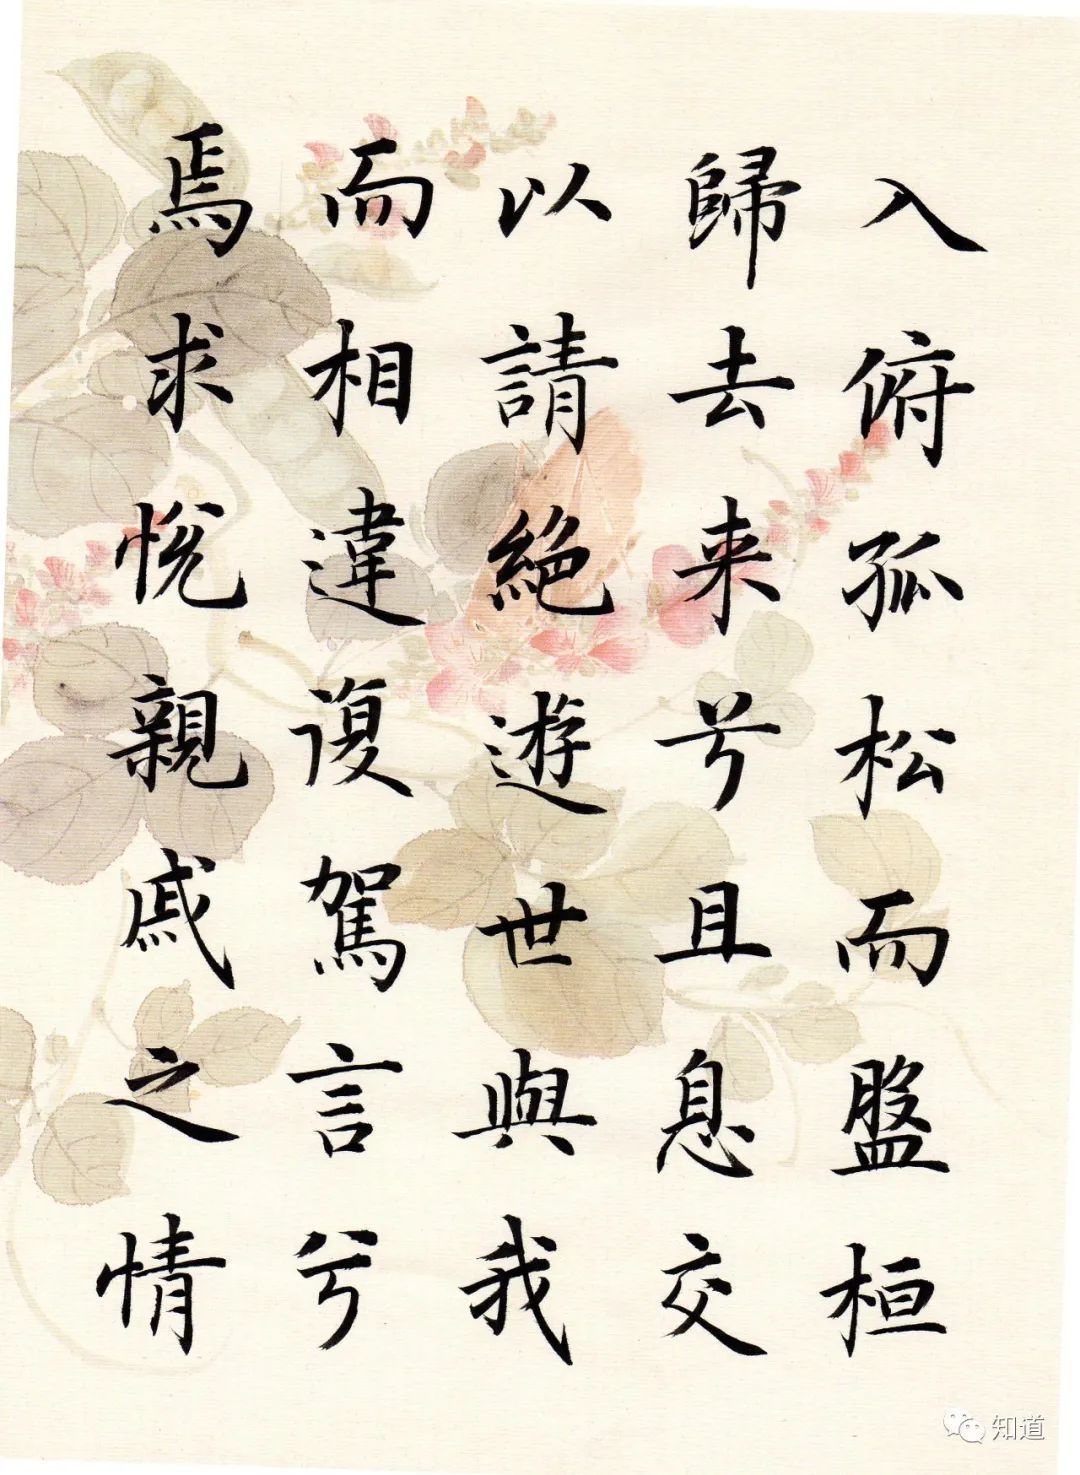 入俯孤松而盤桓
歸去来兮且息交
以請絕遊世與我
而相違復駕言兮
焉求悅親戚之情
知道